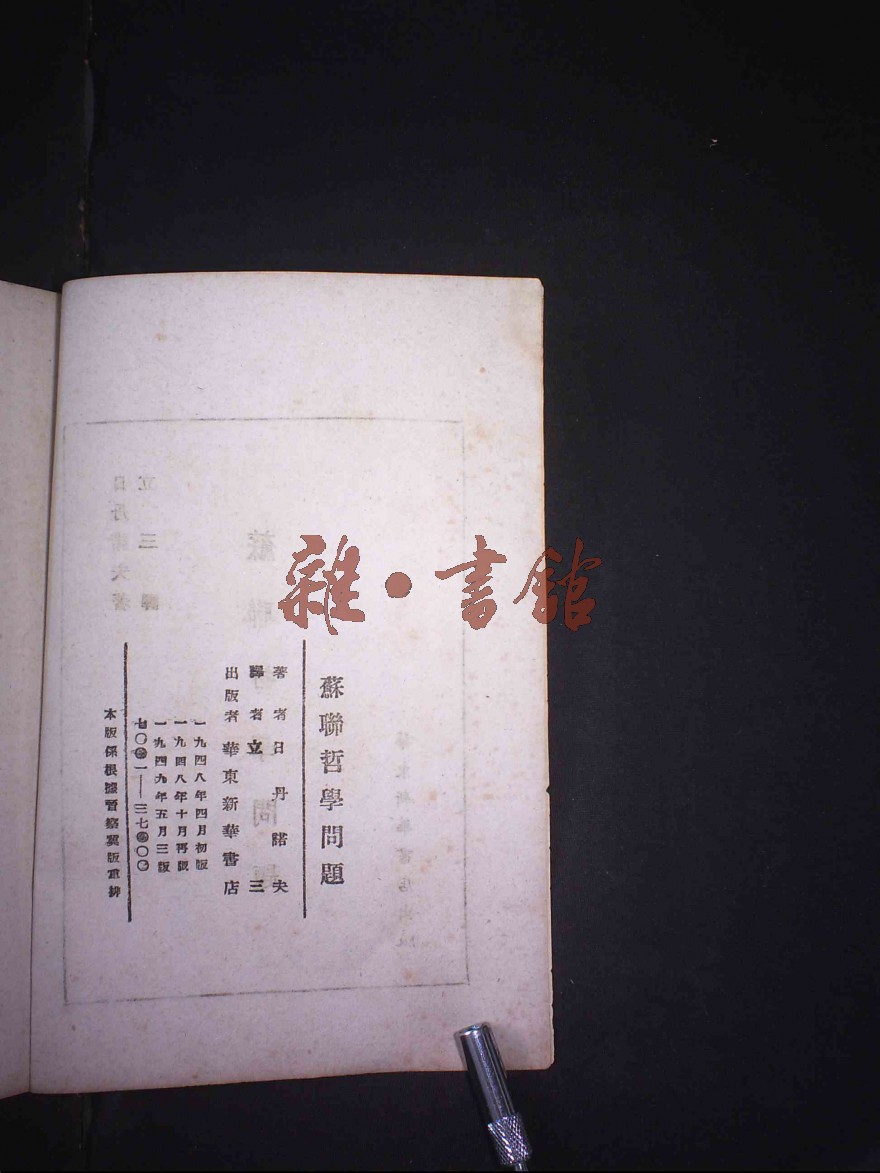 雜·書館
蘇聯哲學問題
著者日丹諾夫
譯者立三
出版者華東新華書店
一九四八年四月初版
一九四八年十月再版
一九四九年五月三版
本版係根據晉察冀版重排